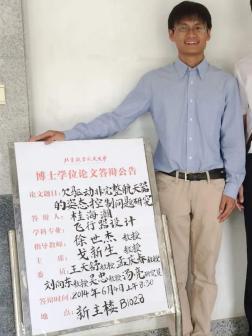 北京航空航天大学
博士学位论文答辩公告
论文题目:欠驱动非完整航天器
的姿态控制问题研究
答辩人:桂海潮
学科专业:飞行器设计
指导教师:徐世杰 教授
主席:戈新生 教授
委员:王天舒教授 孟庆春教授
刘向东教授 吴忠教授 汤亮研究员
答辩时间:2014年6月4日上午8:30
地点:新主楼B1028